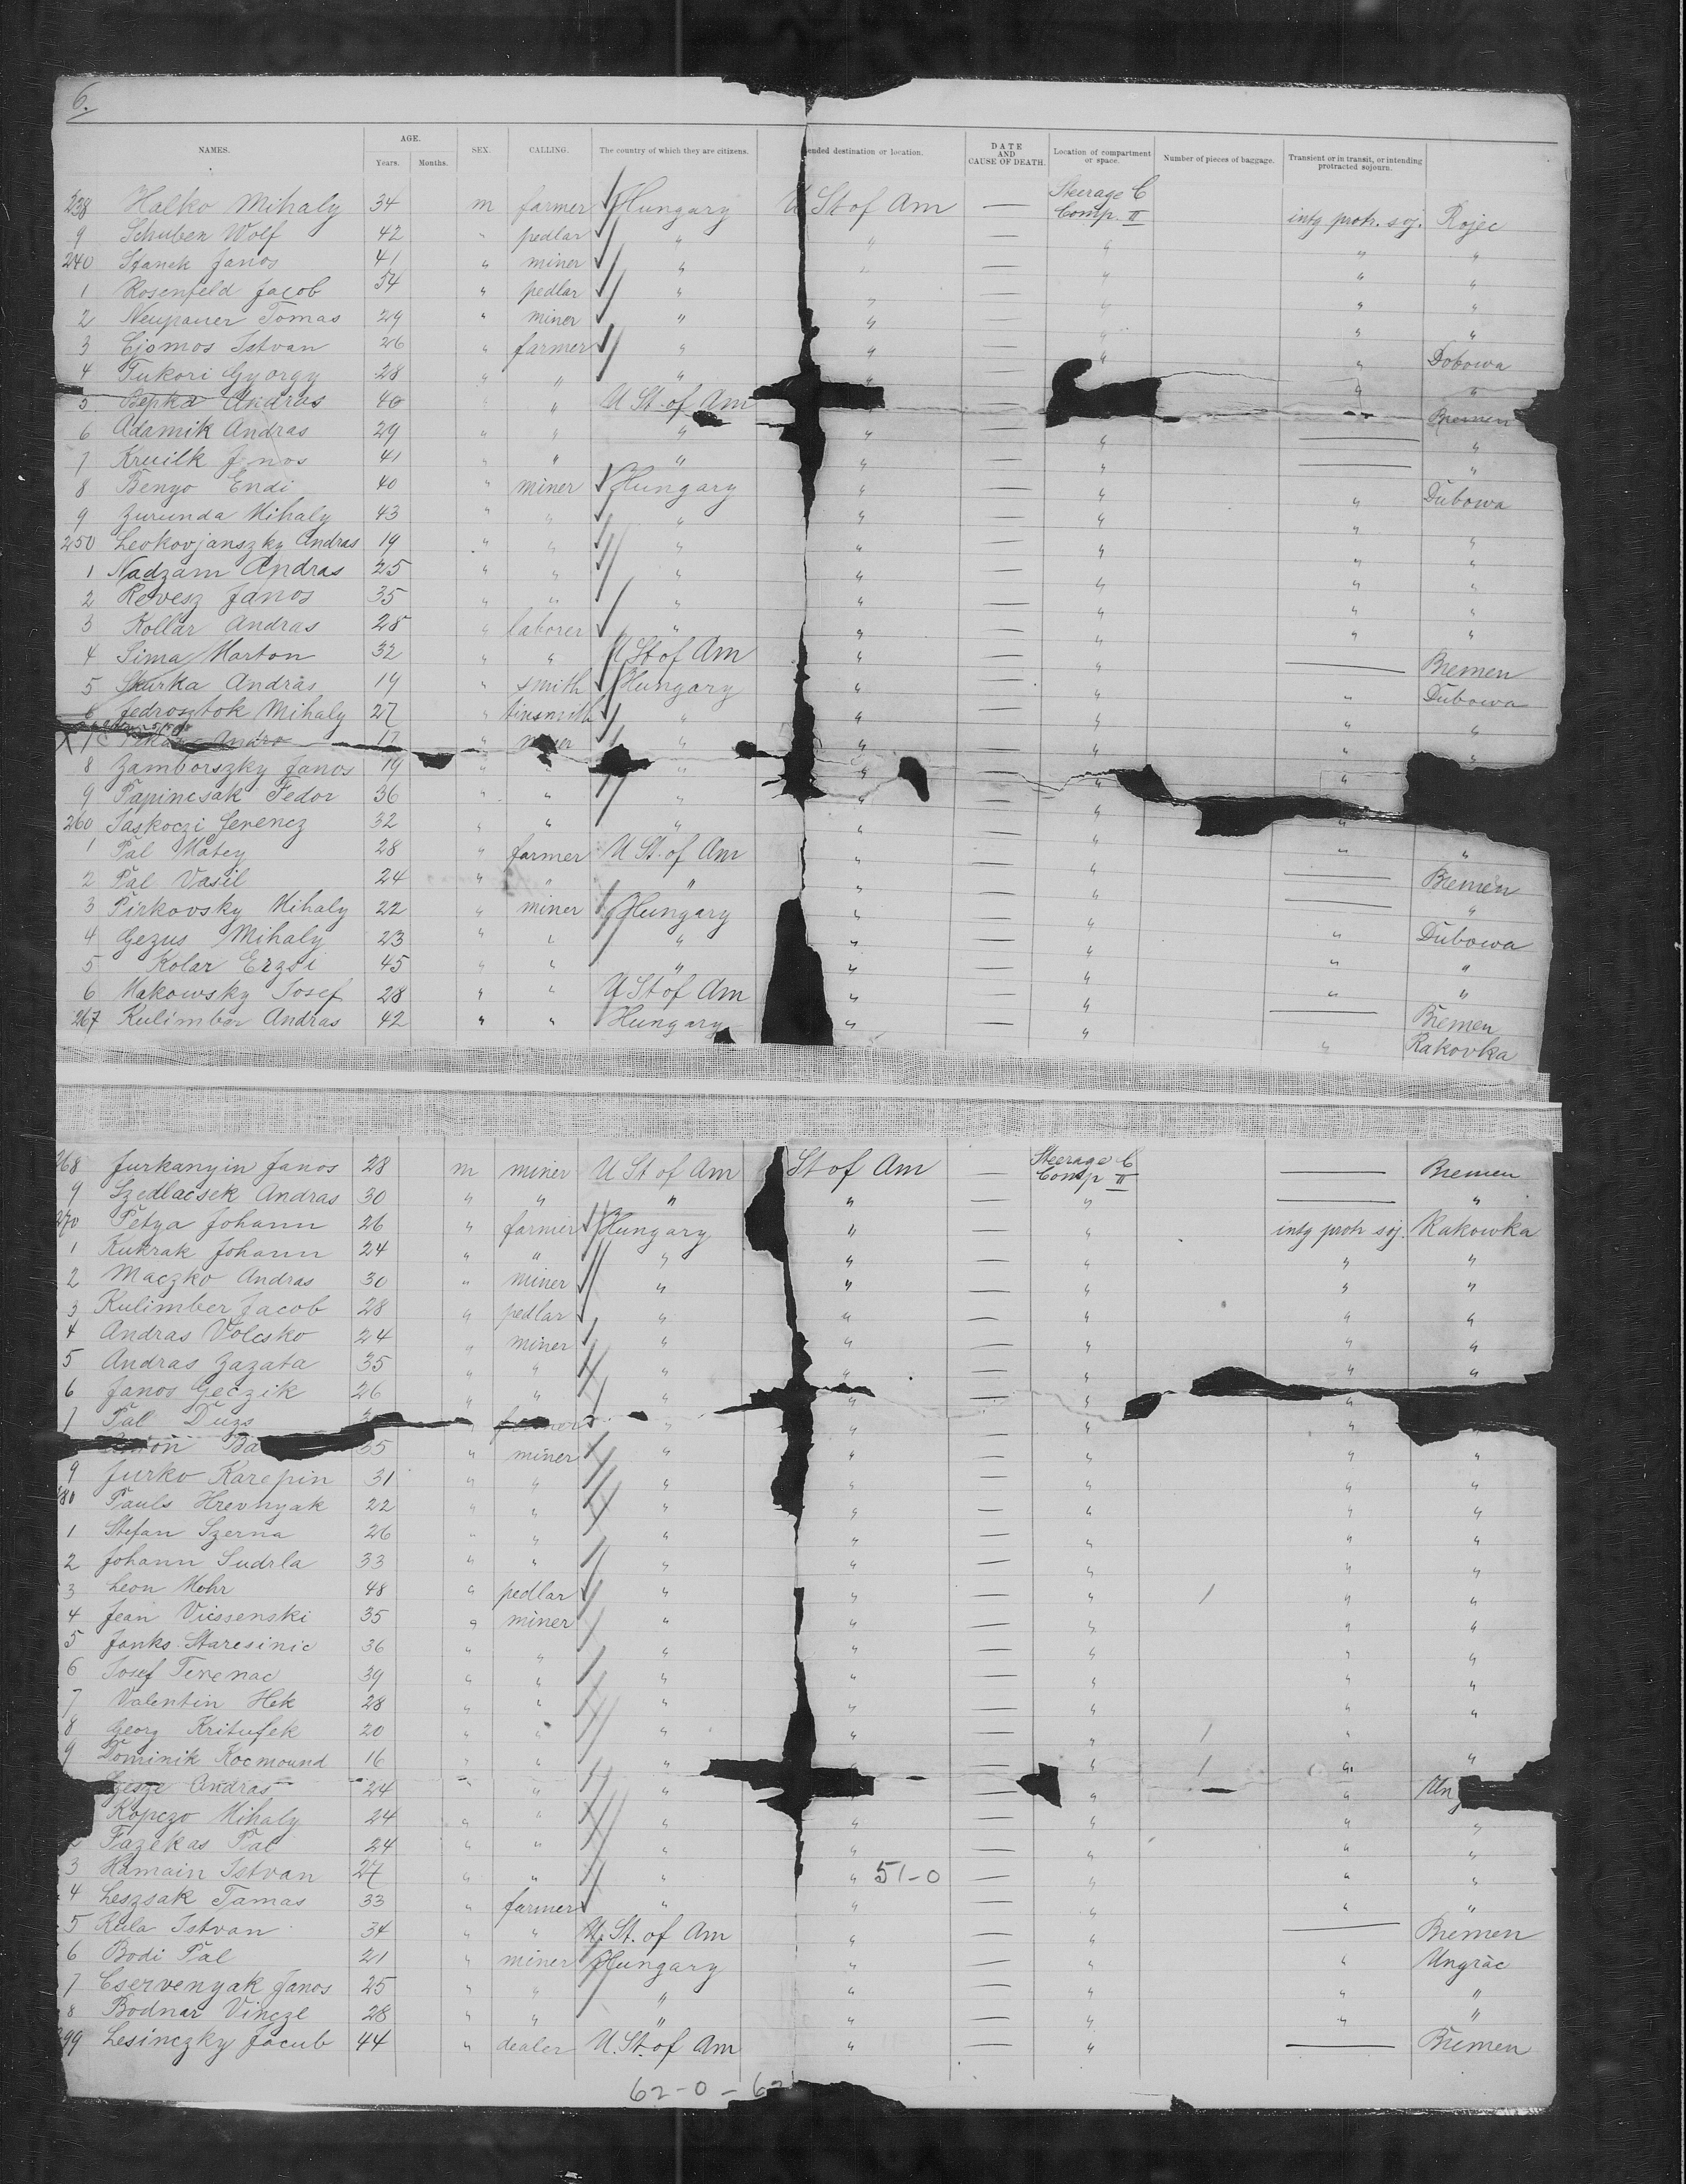 6.
NAMES. AGE. Years. Months. SEX. CALLING. The country of which they are citizens. ended destination or location. DATE AND CAUSE OF DEATH. Location of compartment or space. Number of pieces of baggage. Transient or in transit, or intending protracted sojourn.
238 Halko Mihaly 34 m farmer Hungary U St of Am — Steerage C Comp. II intg protr. soj. Rojec
9 Schuben Wolf 42 " pedlar " " — " " "
240 Stanek Janos 41 " miner " " — " " "
1 Rosenfeld Jacob 54 " pedlar " " — " " "
2 Neupauer Tomas 29 " miner " " — " " "
3 Cjomos Istvan 26 " farmer " " — " " Dobowa
4 Tukori Gyorgy 28 " " " " — " "
5 Bepka Andras 40 " " U St. of Am — Bremen
6 Adamik Andras 29 " " " " — " — "
7 Kruilk J nos 41 " " " " — " — "
8 Benyo Endi 40 " miner Hungary " — " " Dubowa
9 Zurunda Mihaly 43 " " " " — " " "
250 Leokovjanszky Andras 19 " " " " — " " "
1 Nadzam Andras 25 " " " " — " " "
2 Revesz Janos 35 " " " " — " " "
3 Kollar Andras 28 " laborer " " — " " "
4 Sima Marton 32 " " U St of Am " — " — Bremen
5 Skurka Andràs 19 " smith Hungary " — " " Dubowa
6 Jedrosztok Mihaly 27 " tinsmith " " — " " "
Andro 17 " miner " " — " " "
8 Zamborszky Janos 19 " " " " — " "
9 Papincsak Fedor 36 " " " " — "
260 Jaskoczi Ferencz 32 " " " " — " "
1 Pal Matey 28 " farmer U St. of Am " — " — Bremen
2 Pal Vasil 24 " " " " — " — "
3 Pirkovsky Mihaly 22 " miner Hungary " — " " Dubowa
4 Gezus Mihaly 23 " " " " — " " "
5 Kolar Erzsi 45 " " " " — " " "
6 Makowsky Josef 28 " " U St of Am " — " — Bremen
267 Kulimbar Andras 42 " " Hungary " — " " Rakovka
268 Jurkanyin Janos 28 m miner U St of Am St of Am — Steerage C Comp II — Bremen
9 Szedlacsek Andras 30 " " " " — " — "
270 Petya Johann 26 " farmer Hungary " — " intg protr soj. Rakowka
1 Kukrak Johann 24 " " " " — " " "
2 Maczko Andras 30 " miner " " — " " "
3 Kulimber Jacob 28 " pedlar " " — " " "
4 Andras Volcsko 24 " miner " " — " " "
5 Andras Zazata 35 " " " " — " " "
6 Janos Geczik 26 " " " " — " "
7 Pal Duzs " farmer " " — " "
Ba 35 " miner " " — " " "
9 Jurko Karepin 31 " " " " — " " "
280 Pauls Hrevnyak 22 " " " " — " " "
1 Stefan Szerna 26 " " " " — " " "
2 Johann Sudrla 33 " " " " — " " "
3 Leon Mohr 48 " pedlar " " — " 1 " "
4 Jean Vicssenski 35 " miner " " — " " "
5 Janks Staresinic 36 " " " " — " " "
6 Josef Terenac 39 " " " " — " " "
7 Valentin Hek 28 " " " " — " " "
8 Georg Kritufek 20 " " " " — " 1 "
9 Dominik Kocmound 16 " " " " — " 1 " "
Andras 24 " " " — " " Un
Kopczo Mihaly 24 " " " " — " " "
Fazekas Pal 24 " " " " — " " "
3 Hamain Istvan 27 " " " " 51-0 — " " "
4 Leszsak Tamas 33 " farmer " " — " " "
5 Rula Istvan 34 " " U. St. of Am " — " — Bremen
6 Bodi Pal 21 " miner Hungary " — " " Ungràc
7 Cservenyak Janos 25 " " " " — " " "
8 Bodnar Vincze 28 " " " " — " " "
299 Lesinczky Jacub 44 " dealer U. St. of Am " — " — Bremen
62-0-62